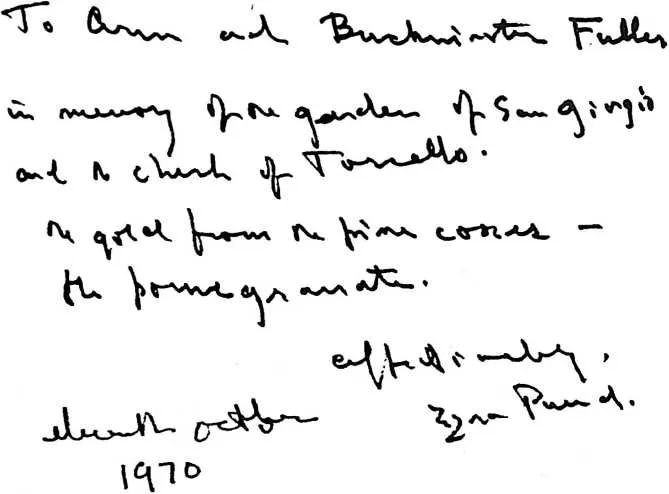 To Ann and Buckminster Fuller
in memory of the garden of San Giorgio
and the church of Torcello.
the gold from the pine cones –
the pomegranate.
affectionately,
Ezra Pound.
eleventh october
1970